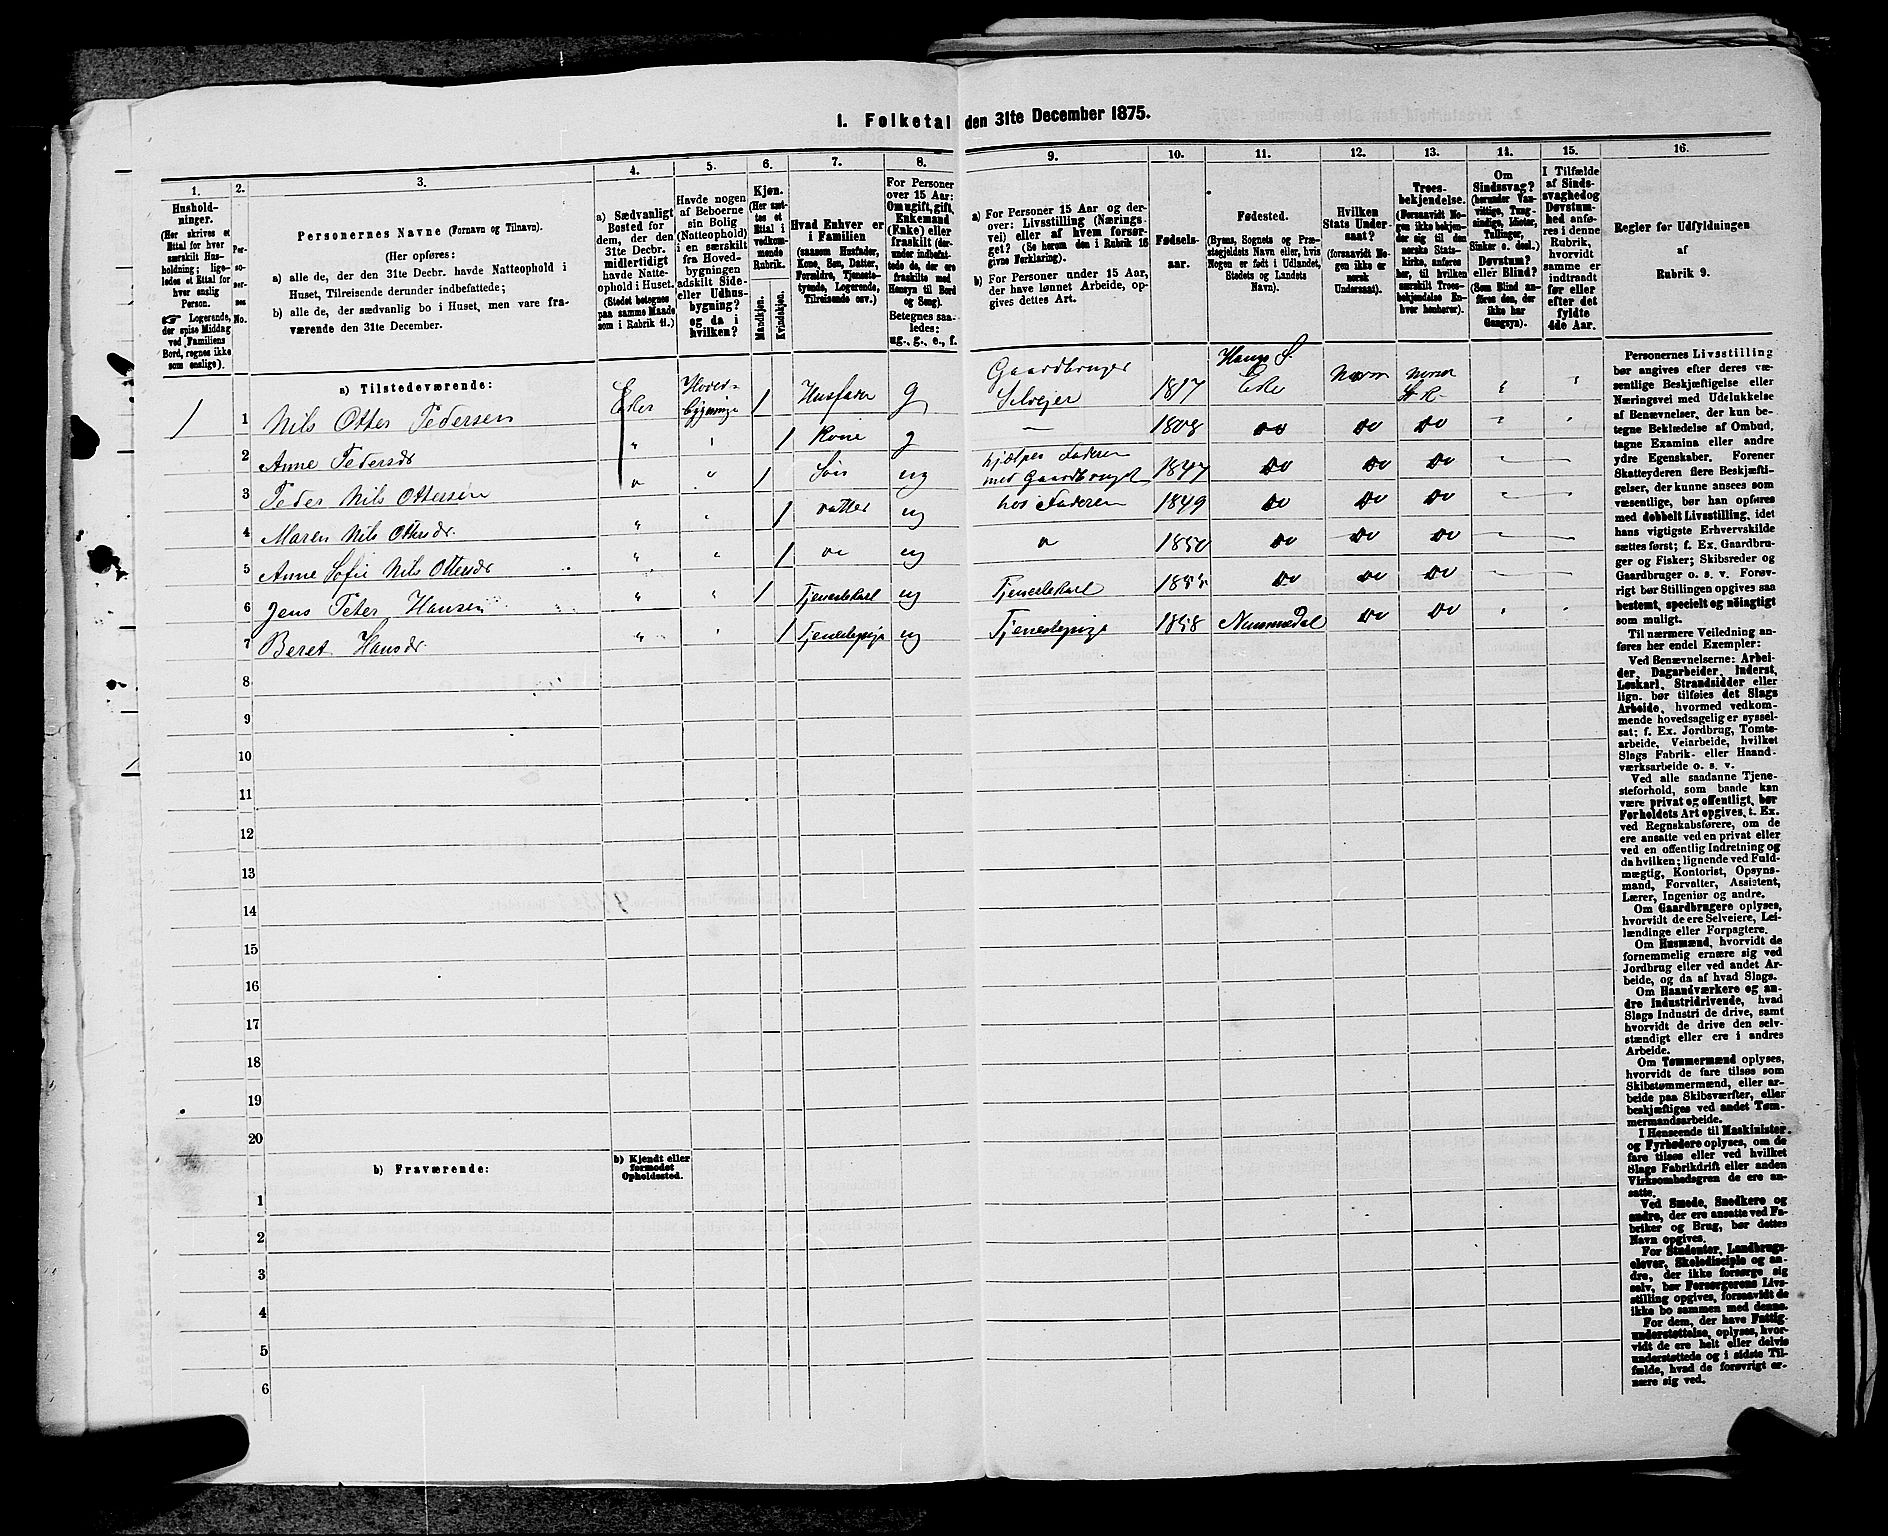 1. Folketal den 31te December 1875.
1.
2.
3.
4.
5.
6.
7.
8.
9.
10.
11.
12.
13.
14.
15.
16.
Husholdninger.
(Her skrives et
Ettal for hver
særskilt Husholdning;
ligeledes et Ettal for
hver enslig
Person.
Logerende,
der spise Middag
ved Familiens
Bord, regnes ikke
som enslige).
Personernes No.
Personernes Navne (Fornavn og Tilnavn).
(Her opføres:
a) alle de, der den 31te Decbr. havde Natteophold i
Huset, Tilreisende derunder indbefattede;
b) alle de, der sædvanlig bo i Huset, men vare fraværende
den 31te December.
a) Sædvanligt
Bosted for
dem, der den
31te Decbr.
midlertidigt
havde Natteophold
i Huset.
(Stedet betegnes
paa samme Maade
som i Rubrik 11.)
Havde nogen
af Beboerne
sin Bolig
(Natteophold)
i en særskilt
fra Hovedbygningen
adskilt Side-
eller Udhusbygning?
og da i
hvilken?
Kjøn.
(Her sættes
et
Ettal i
vedkommende
Rubrik.
Mandkjøn.
Kvindekjøn.
Hvad Enhver er
i Familien
(saasom Husfader,
Kone, Søn, Datter,
Forældre, Tjenestetyende,
Logerende,
Tilreisende osv.)
For Personer
over 15 Aar:
Om ugift, gift,
Enkemand
(Enke) eller
fraskilt (derunder
indbefattede
de, der ere
fraskilte med
Hensyn til Bord
og Seng).
Betegnes saaledes:
ug., g., e., f.
a) For Personer 15 Aar og derover:
Livsstilling (Næringsvei)
eller af hvem forsørget?
(Se herom den i Rubrik 16
givne Forklaring).
b) For Personer under 15 Aar,
der have lønnet Arbeide, opgives
dettes Art.
Fødselsaar.
Fødested.
(Byens, Sognets og Præstegjeldets
Navn eller, hvis
Nogen er født i Udlandet,
Stedets og Landets
Navn).
Hvilken
Stats Undersaat?
(forsaavidt Nogen
ikke er
norsk
Undersaat).
Troesbekjendelse.
(Forsaavidt Nogen
ikke bekjender
sig til den
norske Statskirke,
anføres
her, til hvilken
særskilt Troesbekjendelse
Enhver
henhører).
Om
Sindssvag?
(herunder Vanvittige,
Tungsindige,
Idioter,
Tullinger,
Sinker o. desl.)
Døvstum?
eller Blind?
(Som Blind anføres
den, der
ikke har
Gangsyn).
I Tilfælde
af Sindssvaghed
og
Døvstumhed
anføres
i denne
Rubrik,
hvorvidt
samme er
indtraadt
før eller
efter det
fyldte
4de Aar.
Regler for Udfyldningen
af
Rubrik 9.
a) Tilstedeværende:
1 1 Nils Otter Pedersen Eker Hovedbygning 1 Husfader g Gaardbruger Selveier 1817 Haugs S. Eker Norsk norsk St K. " "
2 Anne Pedersdr " " 1 Kone g — 1808 Do Do Do " "
3 Peder Nils Ottersen " " 1 Søn ug hjælper Faderen med Gaardbruget 1847 Do Do Do " "
4 Maren Nils Ottersdr. " " 1 datter ug hos Faderen 1849 Do Do Do " "
5 Anne Sofie Nils Ottersdr " " 1 do ug " 1850 Do Do Do " "
6 Jens Peter Hansen " " 1 Tjenestekarl ug Tjenestekarl 1855 Do Do Do " "
7 Beret Hansdr " " 1 Tjenestepige ug Tjenestepige 1858 Nummedal Do Do " "
8
9
10
11
12
13
14
15
16
17
18
19
20
b) Fraværende:
b) Kjendt eller
formodet
Opholdssted.
1
2
3
4
5
6
Personernes Livsstilling
bør angives efter deres væsentlige
Beskjæftigelse eller
Næringsvei med Udelukkelse
af Benævnelser, der kun betegne
Beklædelse af Ombud,
tagne Examina eller andre
ydre Egenskaber. Forener
Skatteyderen flere Beskjæftigelser,
der kunne ansees som
væsentlige, bør han opføres
med dobbelt Livsstilling, idet
hans vigtigste Erhvervskilde
sættes først; f. Ex. Gaardbruger
og Fisker; Skibsreder og
Gaardbruger o. s. v. Forøvrigt
bør Stillingen opgives saa
bestemt, specielt og nøiagtigt
som muligt.
Til nærmere Veiledning anføres
her endel Exempler:
Ved Benævnelserne: Arbeider,
Dagarbeider, Inderst,
Løskarl, Strandsidder eller
lign. bør tilføies det Slags
Arbeide, hvormed vedkommende
hovedsagelig er sysselsat;
f. Ex. Jordbrug, Tomtearbeide,
Veiarbeide, hvilket
Slags Fabrik- eller Haandværksarbeide
o. s. v.
Ved alle saadanne Tjenesteforhold,
som baade kan
være privat og offentligt, bør
Forholdets Art opgives, t. Ex.
ved Regnskabsførere, om de
ere ansatte ved en privat eller
ved en offentlig Indretning og
da hvilken; lignende ved Fuldmægtig,
Kontorist, Opsynsmand,
Forvalter, Assistent,
Lærer, Ingeniør og andre.
Om Gaardbrugere oplyses,
hvorvidt de ere Selveiere, Leilændinge
eller Forpagtere.
Om Husmænd, hvorvidt de
fornemmelig ernære sig ved
Jordbrug eller ved andet Arbeide,
og da af hvad Slags.
Om Haandværkere og andre
Industridrivende, hvad
Slags Industri de drive, samt
hvorvidt de drive den selvstændigt
eller ere i andres
Arbeide.
Om Tømmermænd oplyses,
hvorvidt de fare tilsøs som
Skibstømmermænd, eller arbeide
paa Skibsværfter, eller
beskjæftiges ved andet Tømmermandsarbeide.
I Henseende til Maskinister
og Fyrbødere oplyses, om de
fare tilsøs eller ved hvilket
Slags Fabrikdrift eller anden
Virksomhedsgren de ere ansatte.
Ved Smede, Snedkere og
andre, der ere ansatte ved Fabriker
og Brug, bør dettes
Navn opgives.
For Studenter, Landbrugselever,
Skoledisciple og andre,
der ikke forsørge sig
selv, bør Forsørgerens Livsstilling
opgives, forsaavidt de
ikke bo sammen med denne.
For dem, der have Fattigunderstøttelse,
oplyses, hvorvidt
de ere helt eller delvis
understøttede og i sidste Tilfælde,
hvad de forøvrigt ernære
sig ved.